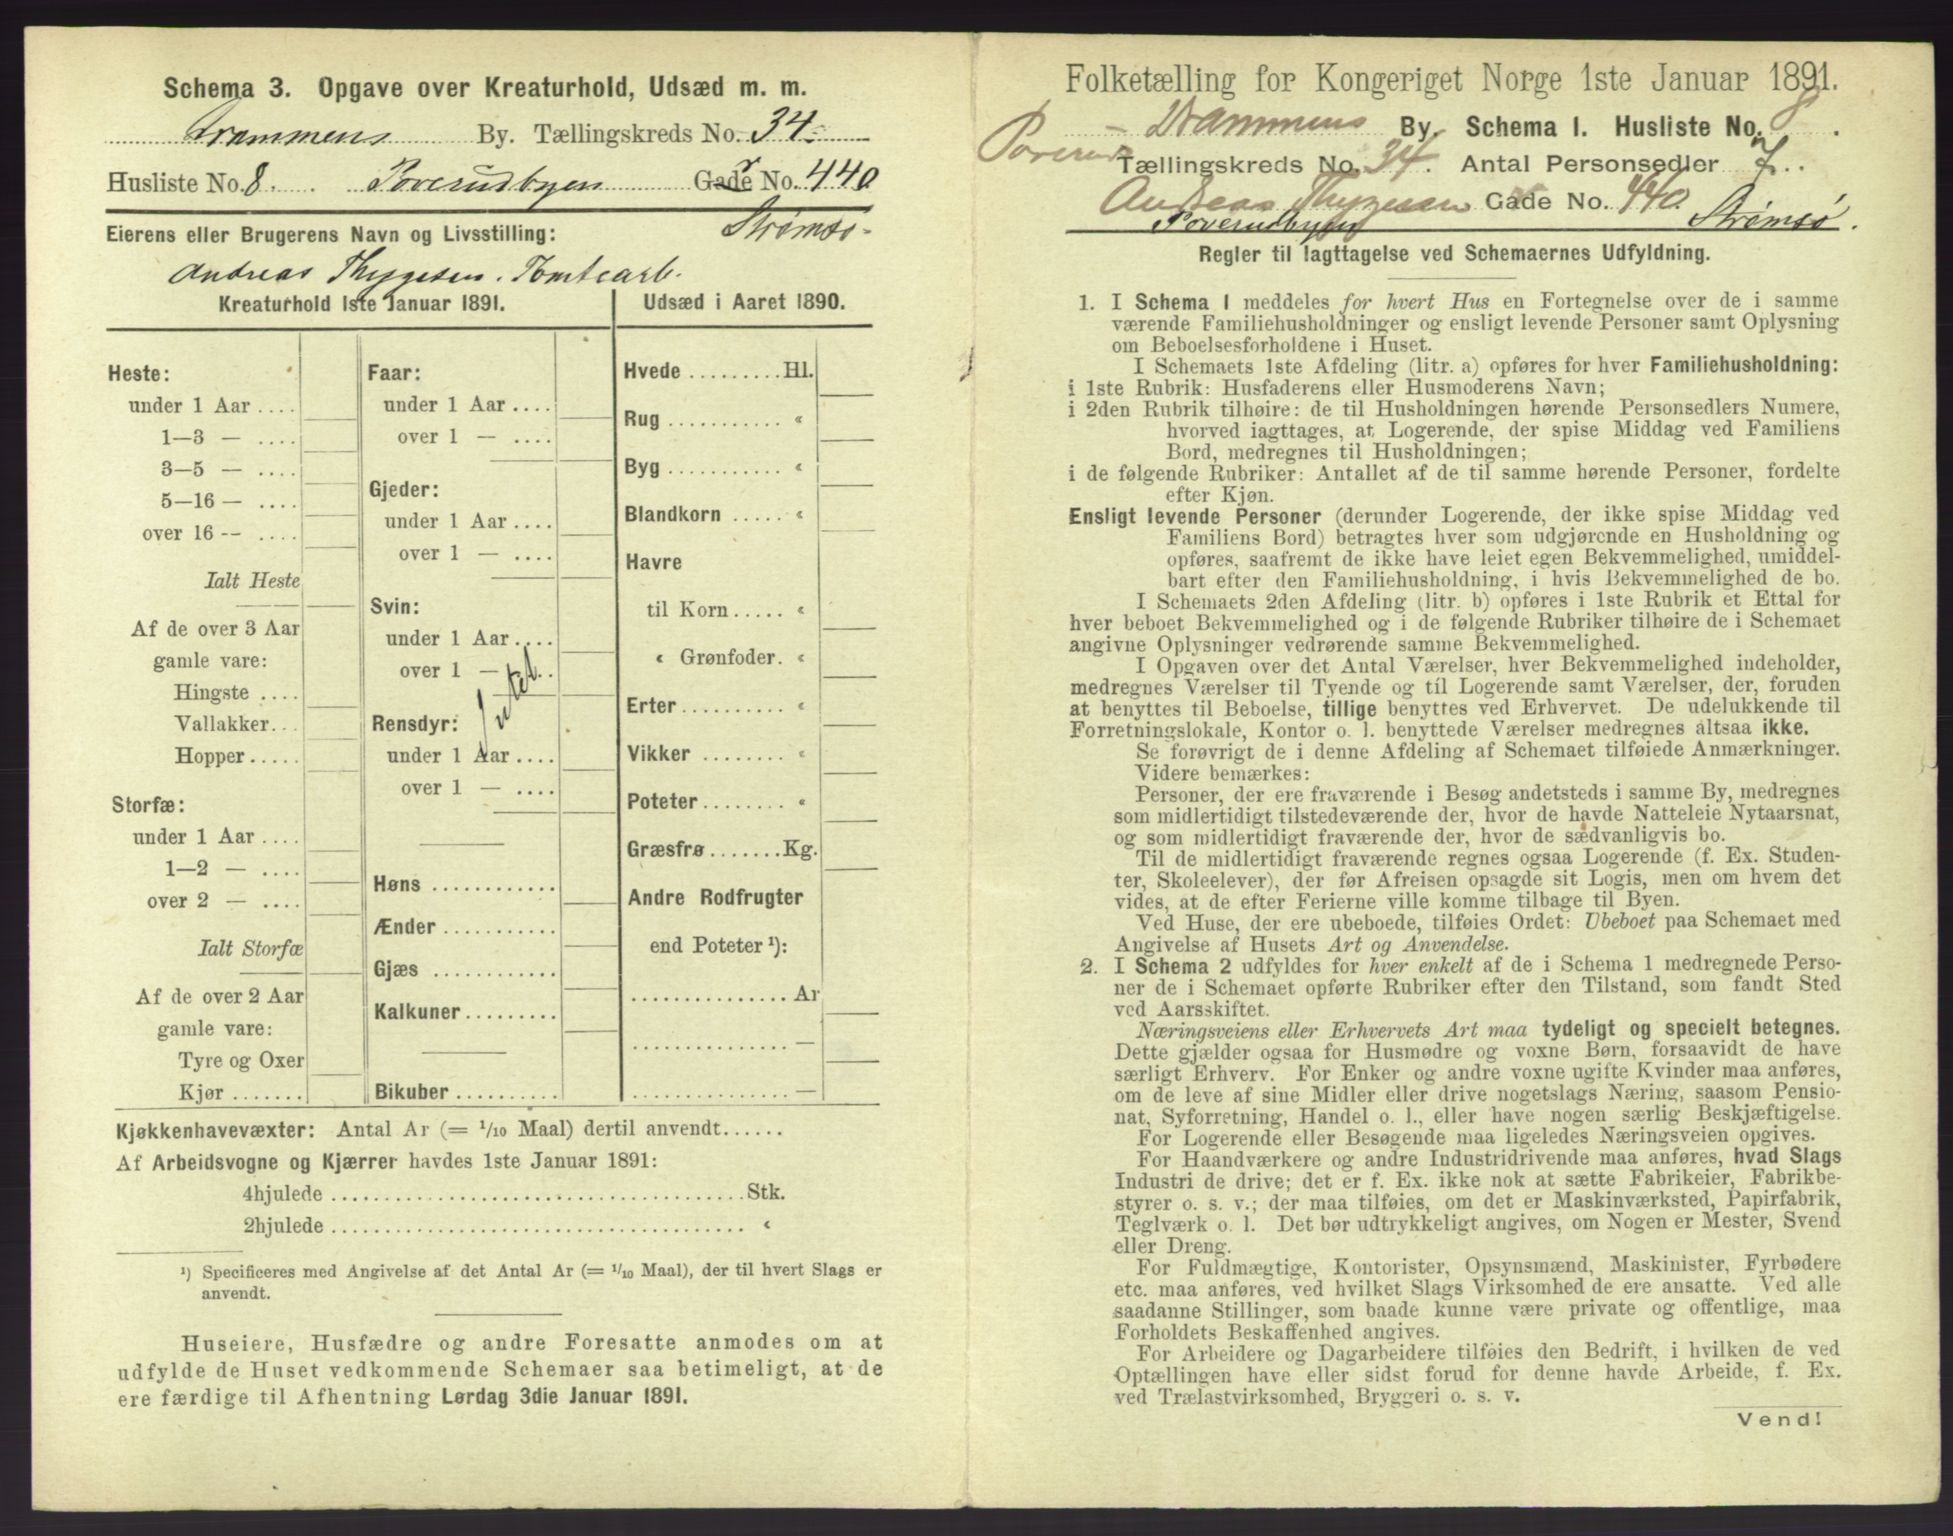 Schema 3. Opgave over Kreaturhold, Udsæd m. m.
Drammens By. Tællingskreds No. 34.
Husliste No. 8. Poverudbyen Gade No. 440
Strømsø.
Eierens eller Brugerens Navn og Livsstilling:
Andreas Thygesen. Tomtearb.
Kreaturhold 1ste Januar 1891.
Heste:
under 1 Aar ....
1—3 — ....
3—5 — ....
5—16 — ....
over 16 — ....
Ialt Heste
Af de over 3 Aar
gamle vare:
Hingste ....
Vallakker...
Hopper.....
Storfæ:
under 1 Aar ....
1—2 — ....
over 2 — ....
Ialt Storfæ
Af de over 2 Aar
gamle vare:
Tyre og Oxer
Kjør .......
Faar:
under 1 Aar ....
over 1 — ....
Gjeder:
under 1 Aar ....
over 1 — ....
Svin:
under 1 Aar ....
over 1 — ....
Intet
Rensdyr:
under 1 Aar ....
over 1 — ....
Høns ............
Ænder ...........
Gjæs ............
Kalkuner.........
Bikuber ..........
Udsæd i Aaret 1890.
Hvede .........Hl.
Rug ........... «
Byg ........... «
Blandkorn ..... «
Havre
til Korn ..... «
« Grønfoder. «
Erter.......... «
Vikker ........ «
Poteter........ «
Græsfrø.......Kg.
Andre Rodfrugter
end Poteter ¹):
............... Ar
............... —
............... —
Kjøkkenhavevæxter: Antal Ar (= 1/10 Maal) dertil anvendt......
Af Arbeidsvogne og Kjærrer havdes 1ste Januar 1891:
4hjulede ........................................Stk.
2hjulede ........................................ «
¹) Specificeres med Angivelse af det Antal Ar (= 1/10 Maal), der til hvert Slags er
anvendt.
Huseiere, Husfædre og andre Foresatte anmodes om at
udfylde de Huset vedkommende Schemaer saa betimeligt, at de
ere færdige til Afhentning Lørdag 3die Januar 1891.
Folketælling for Kongeriget Norge 1ste Januar 1891.
Drammens By. Schema I. Husliste No. 8.
Tællingskreds No. 34. Antal Personsedler 7.
Andreas Thygesen Gade No. 440.
Poverudbyen Strømsø.
Regler til Iagttagelse ved Schemaernes Udfyldning.
1. I Schema 1 meddeles for hvert Hus en Fortegnelse over de i samme
værende Familiehusholdninger og ensligt levende Personer samt Oplysning
om Beboelsesforholdene i Huset.
I Schemaets 1ste Afdeling (litr. a) opføres for hver Familiehusholdning:
i 1ste Rubrik: Husfaderens eller Husmoderens Navn;
i 2den Rubrik tilhøire: de til Husholdningen hørende Personsedlers Numere,
hvorved iagttages, at Logerende, der spise Middag ved Familiens
Bord, medregnes til Husholdningen;
i de følgende Rubriker: Antallet af de til samme hørende Personer, fordelte
efter Kjøn.
Ensligt levende Personer (derunder Logerende, der ikke spise Middag ved
Familiens Bord) betragtes hver som udgjørende en Husholdning og
opføres, saafremt de ikke have leiet egen Bekvemmelighed, umiddel-
bart efter den Familiehusholdning, i hvis Bekvemmelighed de bo.
I Schemaets 2den Afdeling (litr. b) opføres i 1ste Rubrik et Ettal for
hver beboet Bekvemmelighed og i de følgende Rubriker tilhøire de i Schemaet
angivne Oplysninger vedrørende samme Bekvemmelighed.
I Opgaven over det Antal Værelser, hver Bekvemmelighed indeholder,
medregnes Værelser til Tyende og til Logerende samt Værelser, der, foruden
at benyttes til Beboelse, tillige benyttes ved Erhvervet. De udelukkende til
Forretningslokale, Kontor o. l. benyttede Værelser medregnes altsaa ikke.
Se forøvrigt de i denne Afdeling af Schemaet tilføiede Anmærkninger.
Videre bemærkes:
Personer, der ere fraværende i Besøg andetsteds i samme By, medregnes
som midlertidigt tilstedeværende der, hvor de havde Natteleie Nytaarsnat,
og som midlertidigt fraværende der, hvor de sædvanligvis bo.
Til de midlertidigt fraværende regnes ogsaa Logerende (f. Ex. Studen-
ter, Skoleelever), der før Afreisen opsagde sit Logis, men om hvem det
vides, at de efter Ferierne ville komme tilbage til Byen.
Ved Huse, der ere ubeboede, tilføies Ordet: Ubeboet paa Schemaet med
Angivelse af Husets Art og Anvendelse.
2. I Schema 2 udfyldes for hver enkelt af de i Schema 1 medregnede Perso-
ner de i Schemaet opførte Rubriker efter den Tilstand, som fandt Sted
ved Aarsskiftet.
Næringsveiens eller Erhvervets Art maa tydeligt og specielt betegnes.
Dette gjælder ogsaa for Husmødre og voxne Børn, forsaavidt de have
særligt Erhverv. For Enker og andre voxne ugifte Kvinder maa anføres,
om de leve af sine Midler eller drive nogetslags Næring, saasom Pensio-
nat, Syforretning, Handel o. l., eller have nogen særlig Beskjæftigelse.
For Logerende eller Besøgende maa ligeledes Næringsveien opgives.
For Haandværkere og andre Industridrivende maa anføres, hvad Slags
Industri de drive; det er f. Ex. ikke nok at sætte Fabrikeier, Fabrikbe-
styrer o. s. v.; der maa tilføies, om det er Maskinværksted, Papirfabrik,
Teglværk o. l. Det bør udtrykkeligt angives, om Nogen er Mester, Svend
eller Dreng.
For Fuldmægtige, Kontorister, Opsynsmænd, Maskinister, Fyrbødere
etc. maa anføres, ved hvilket Slags Virksomhed de ere ansatte. Ved alle
saadanne Stillinger, som baade kunne være private og offentlige, maa
Forholdets Beskaffenhed angives.
For Arbeidere og Dagarbeidere tilføies den Bedrift, i hvilken de ved
Optællingen have eller sidst forud for denne havde Arbeide, f. Ex.
ved Trælastvirksomhed, Bryggeri o. s. v.
Vend!